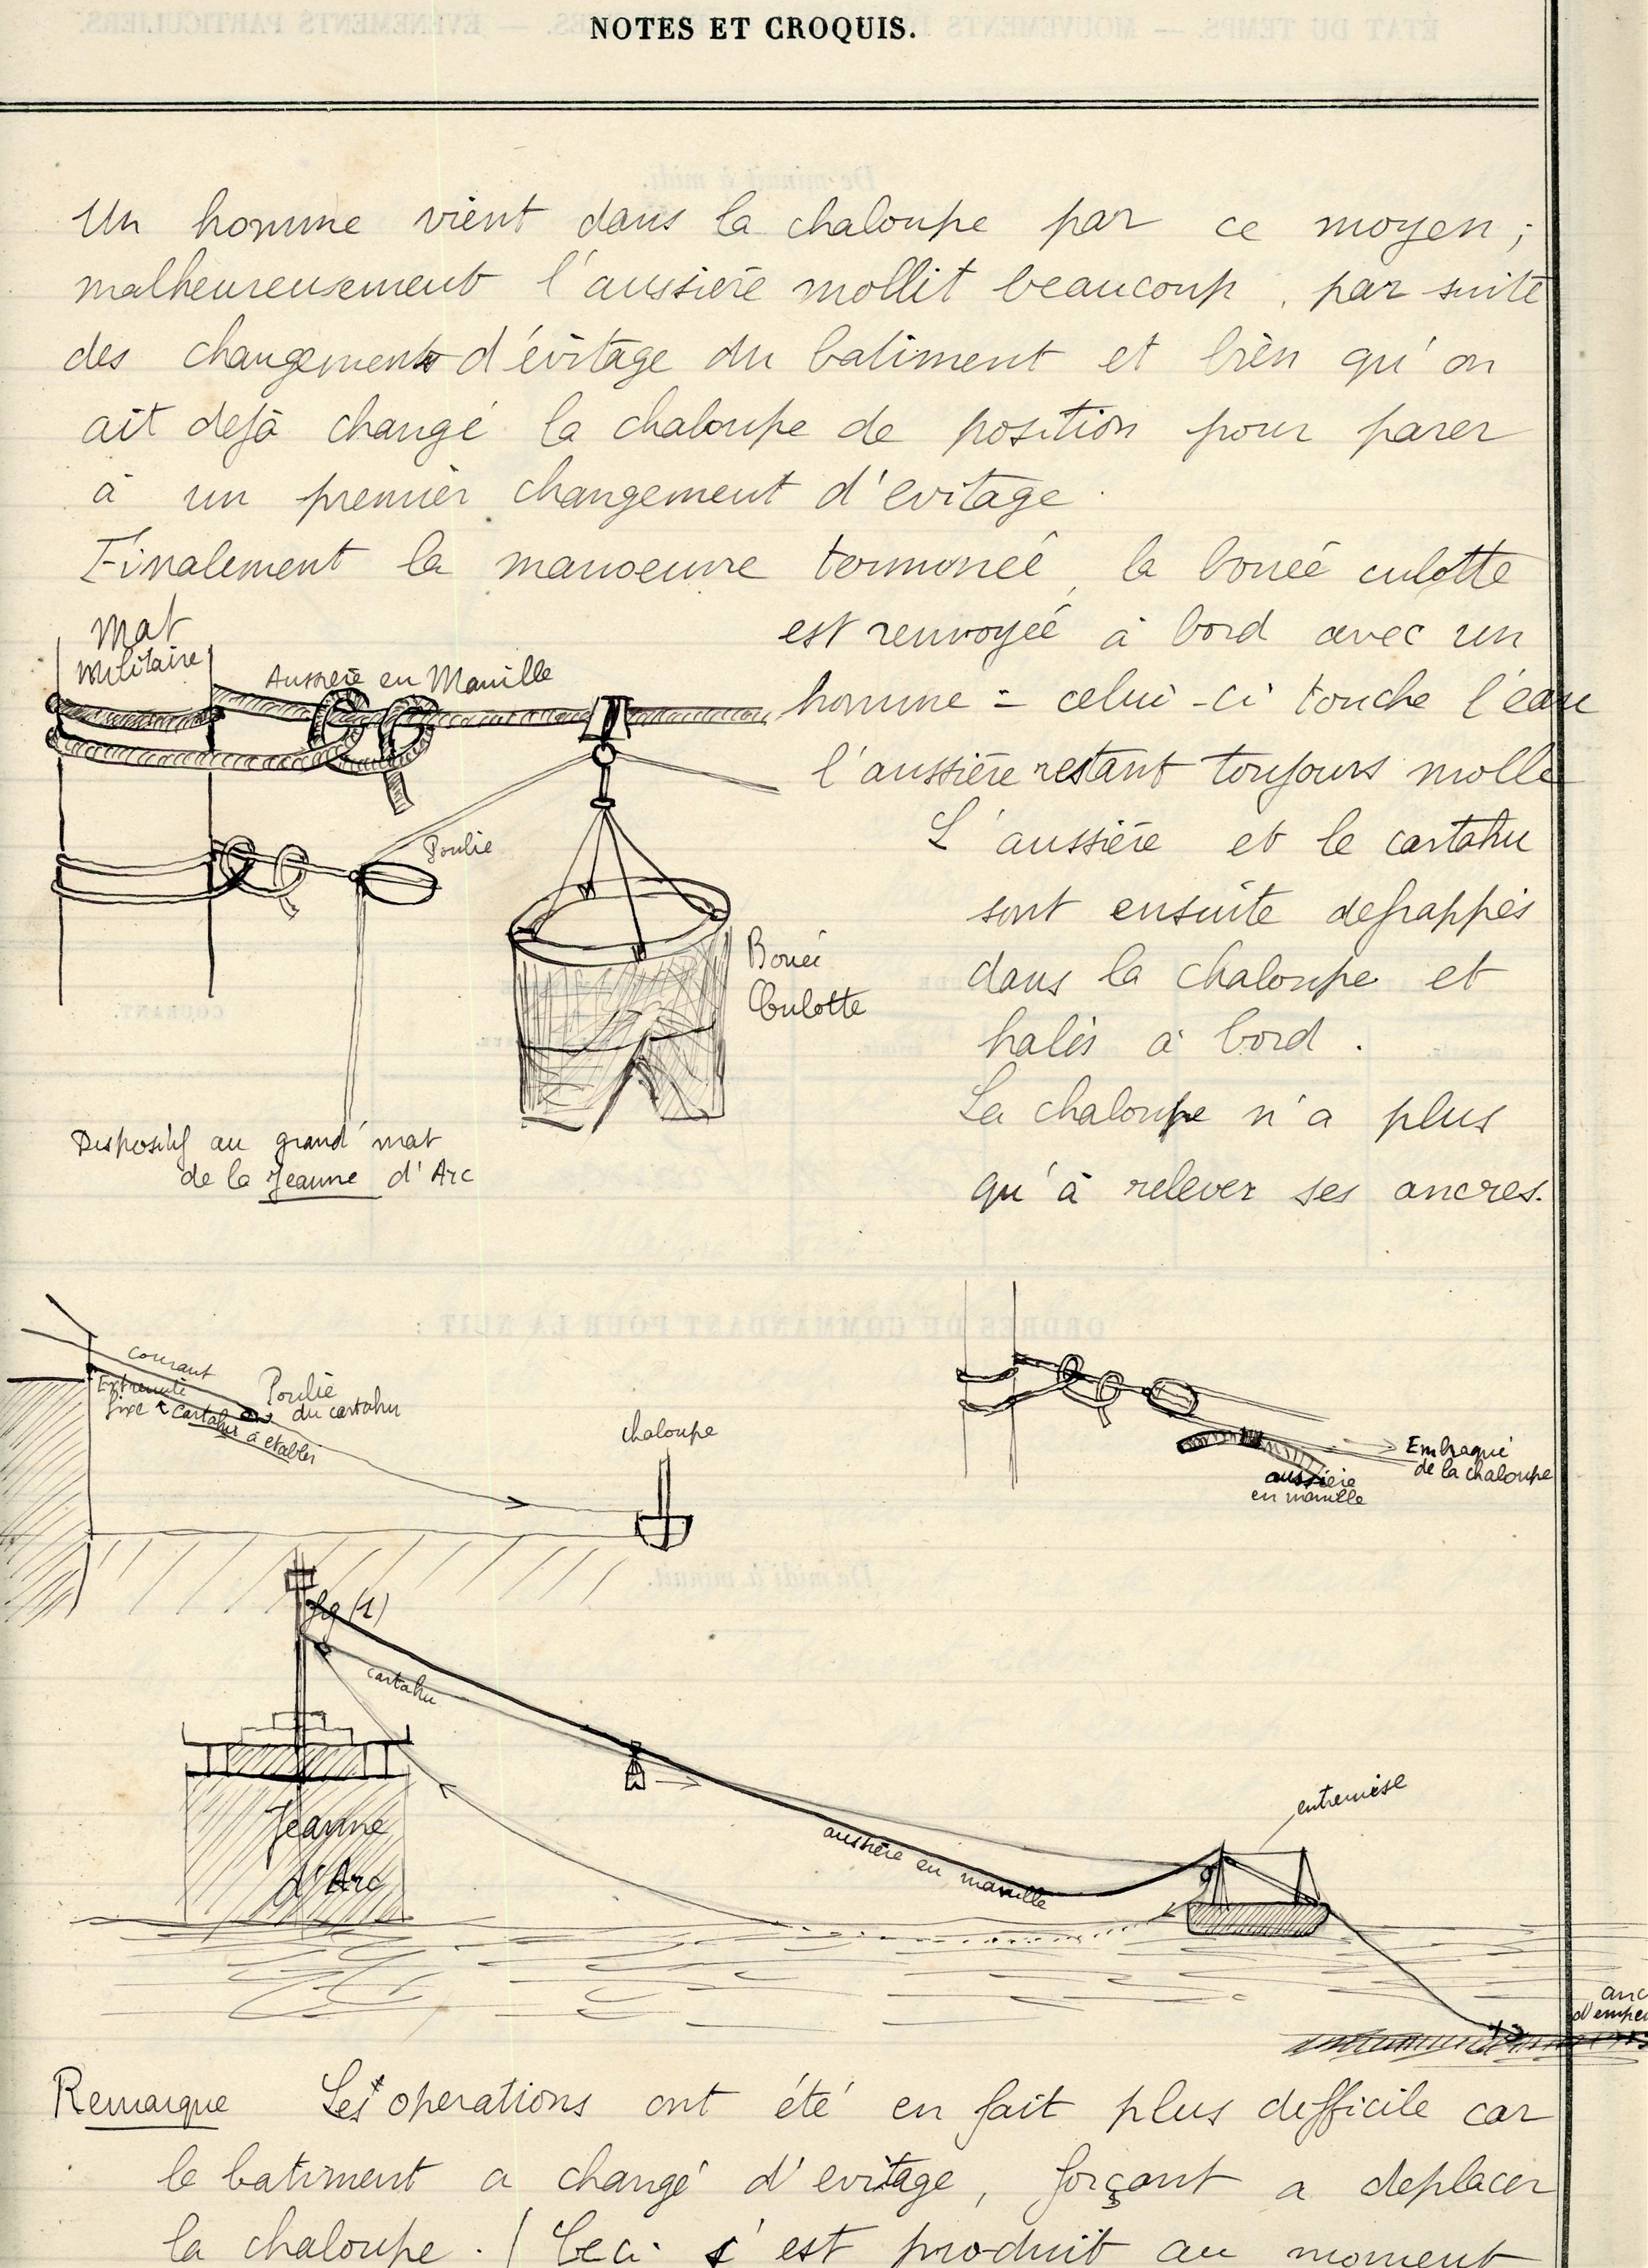 NOTES ET CROQUIS.
Un homme vient dans la chaloupe par ce moyen ;
malheureusement l'aussière mollit beaucoup, par suite
des changements d'évitage du batiment et bien qu'on
ait dejà changé la chaloupe de position pour parer
à un premier changement d'evitage.
Finalement la manoeuvre terminée, la bouée culotte
est renvoyée à bord avec un
homme = celui-ci touche l'eau
l'aussière restant toujours molle
L'aussière et le cartahu
sont ensuite defrappés
dans la chaloupe et
halés à bord.
La chaloupe n'a plus
qu'à relever ses ancres.
Mat
militaire
Aussière en Manille
Poulie
Bouée
Culotte
Dispositif au grand mat
de la Jeanne d'Arc
courant
Extremité
fixe
Cartahu à etablir
Poulie
du cartahu
chaloupe
Embraqué
de la chaloupe
aussière
en manille
fig (1)
cartahu
Jeanne
d'Arc
aussière en manille
entremise
anc
d'empen
Remarque Les operations ont été en fait plus difficile car
le batiment a changé d'evitage, forçant a deplacer
la chaloupe. ( Ceci s'est produit au moment